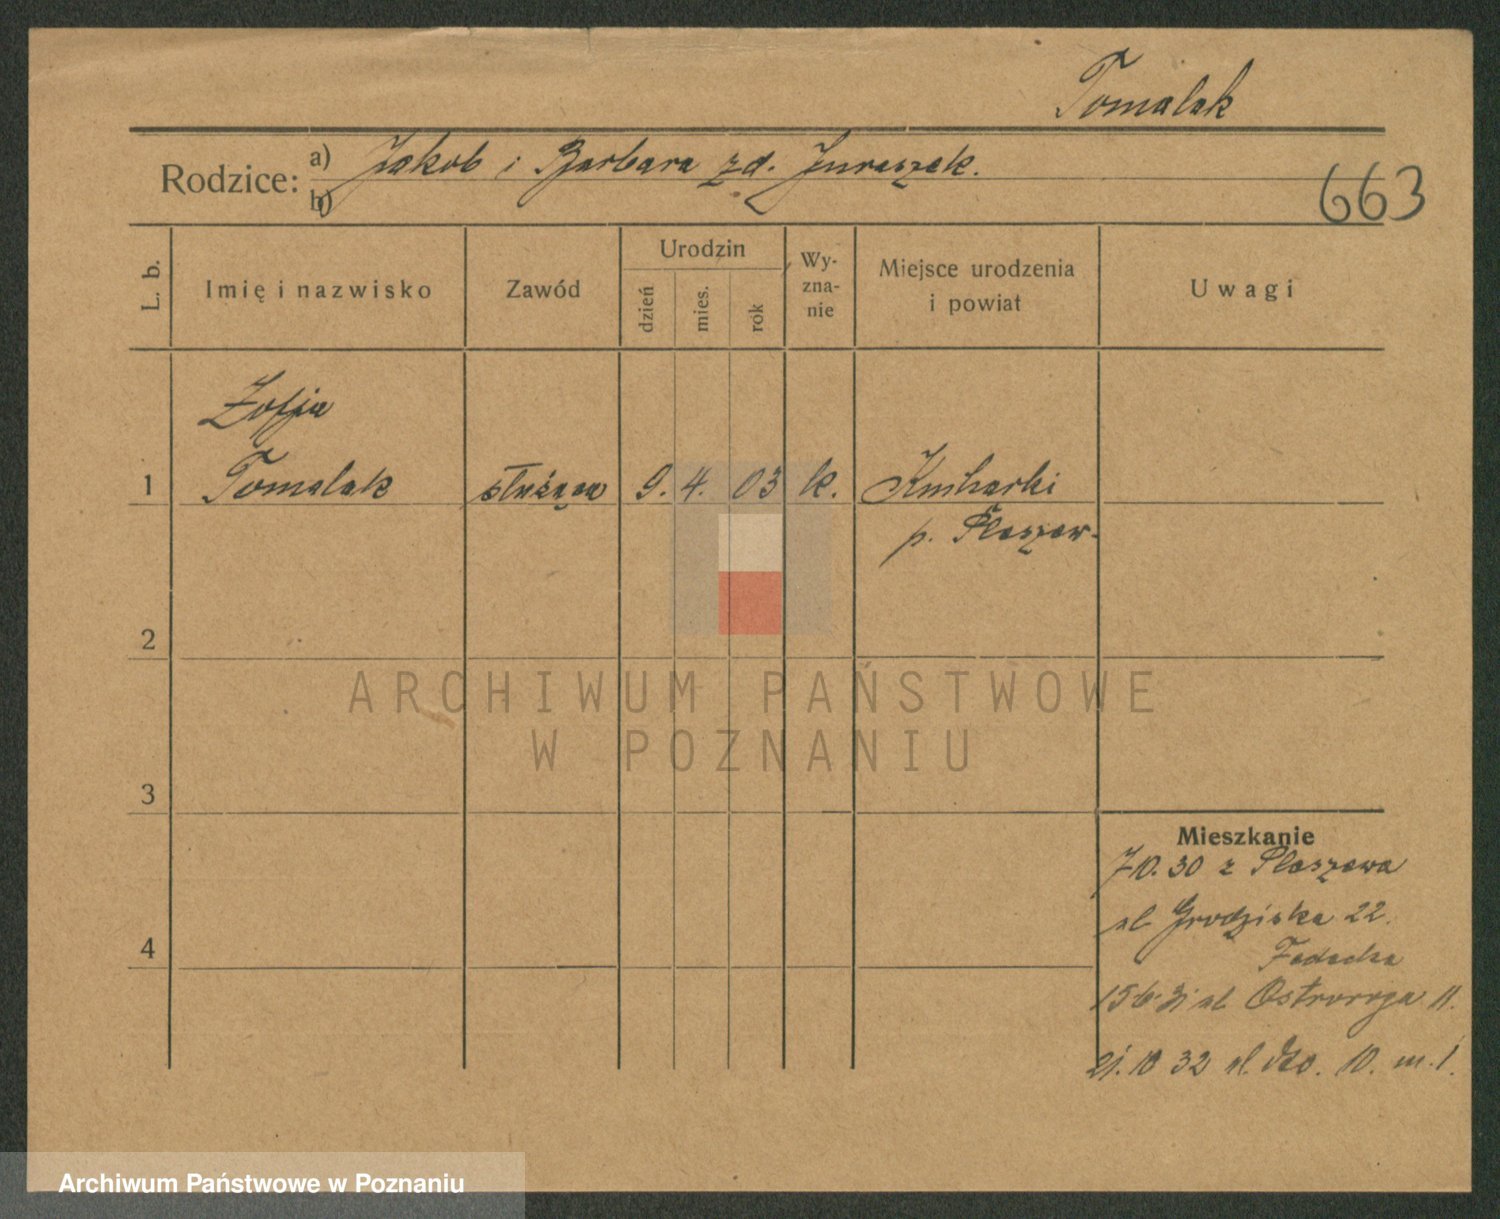 Tomalak
Rodzice: a) Jakob i Barbara zd. Juraszek.
b)
663
L. b.
Imię i nazwisko
Zawód
Urodzin
dzień
mies.
rok
Wy-
zna-
nie
Miejsce urodzenia
i powiat
Uwagi
Zofja
1 Tomalak służąca 9. 4. 03 k. Kucharki
p. Pleszew.
2
ARCHIWUM PAŃSTWOWE
W POZNANIU
3
Mieszkanie
7 10. 30 z Pleszewa
ul Grodziska 22.
4
15 6 31 ul Ostroroga 11.
21. 10 32 ul. 10. m. 1.
Archiwum Państwowe w Poznaniu